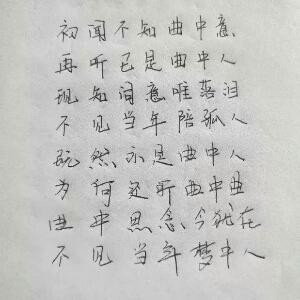 初闻不知曲中意
再听已是曲中人
现知词意唯落泪
不见当年陪孤人
既然亦是曲中人
为何还听曲中曲
曲中思念今犹在
不见当年梦中人